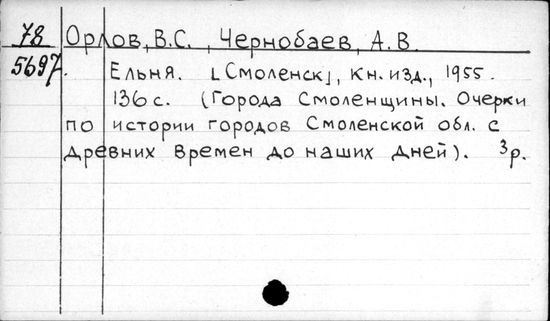 78 Орлов, В.С., Чернобаев, А.В.
5697. Ельня. [Смоленск], кн. изд., 1955.
136 с. (Города Смоленщины. Очерки
по истории городов Смоленской обл. с
древних времен до наших дней). 3р.